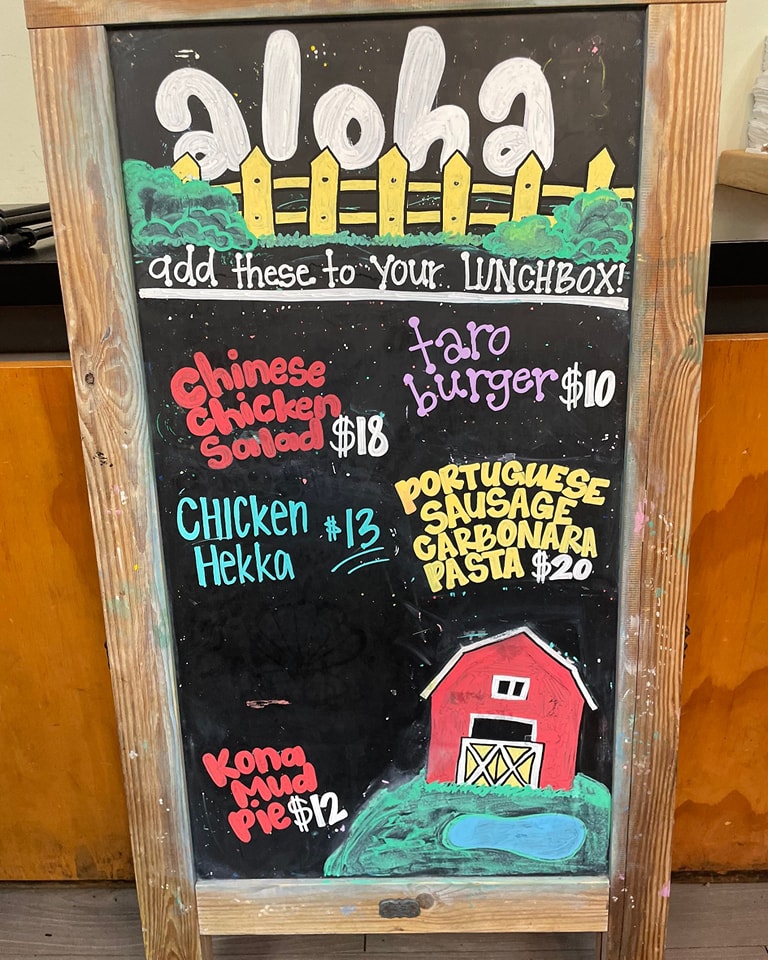 aloha
add these to your LUNCHBOX!
Chinese
Chicken
Salad $18
taro
burger $10
CHICKen $13
Hekka
PORTUGUESE
SAUSAGE
CARBONARA
PASTA $20
Kona
Mud
Pie $12